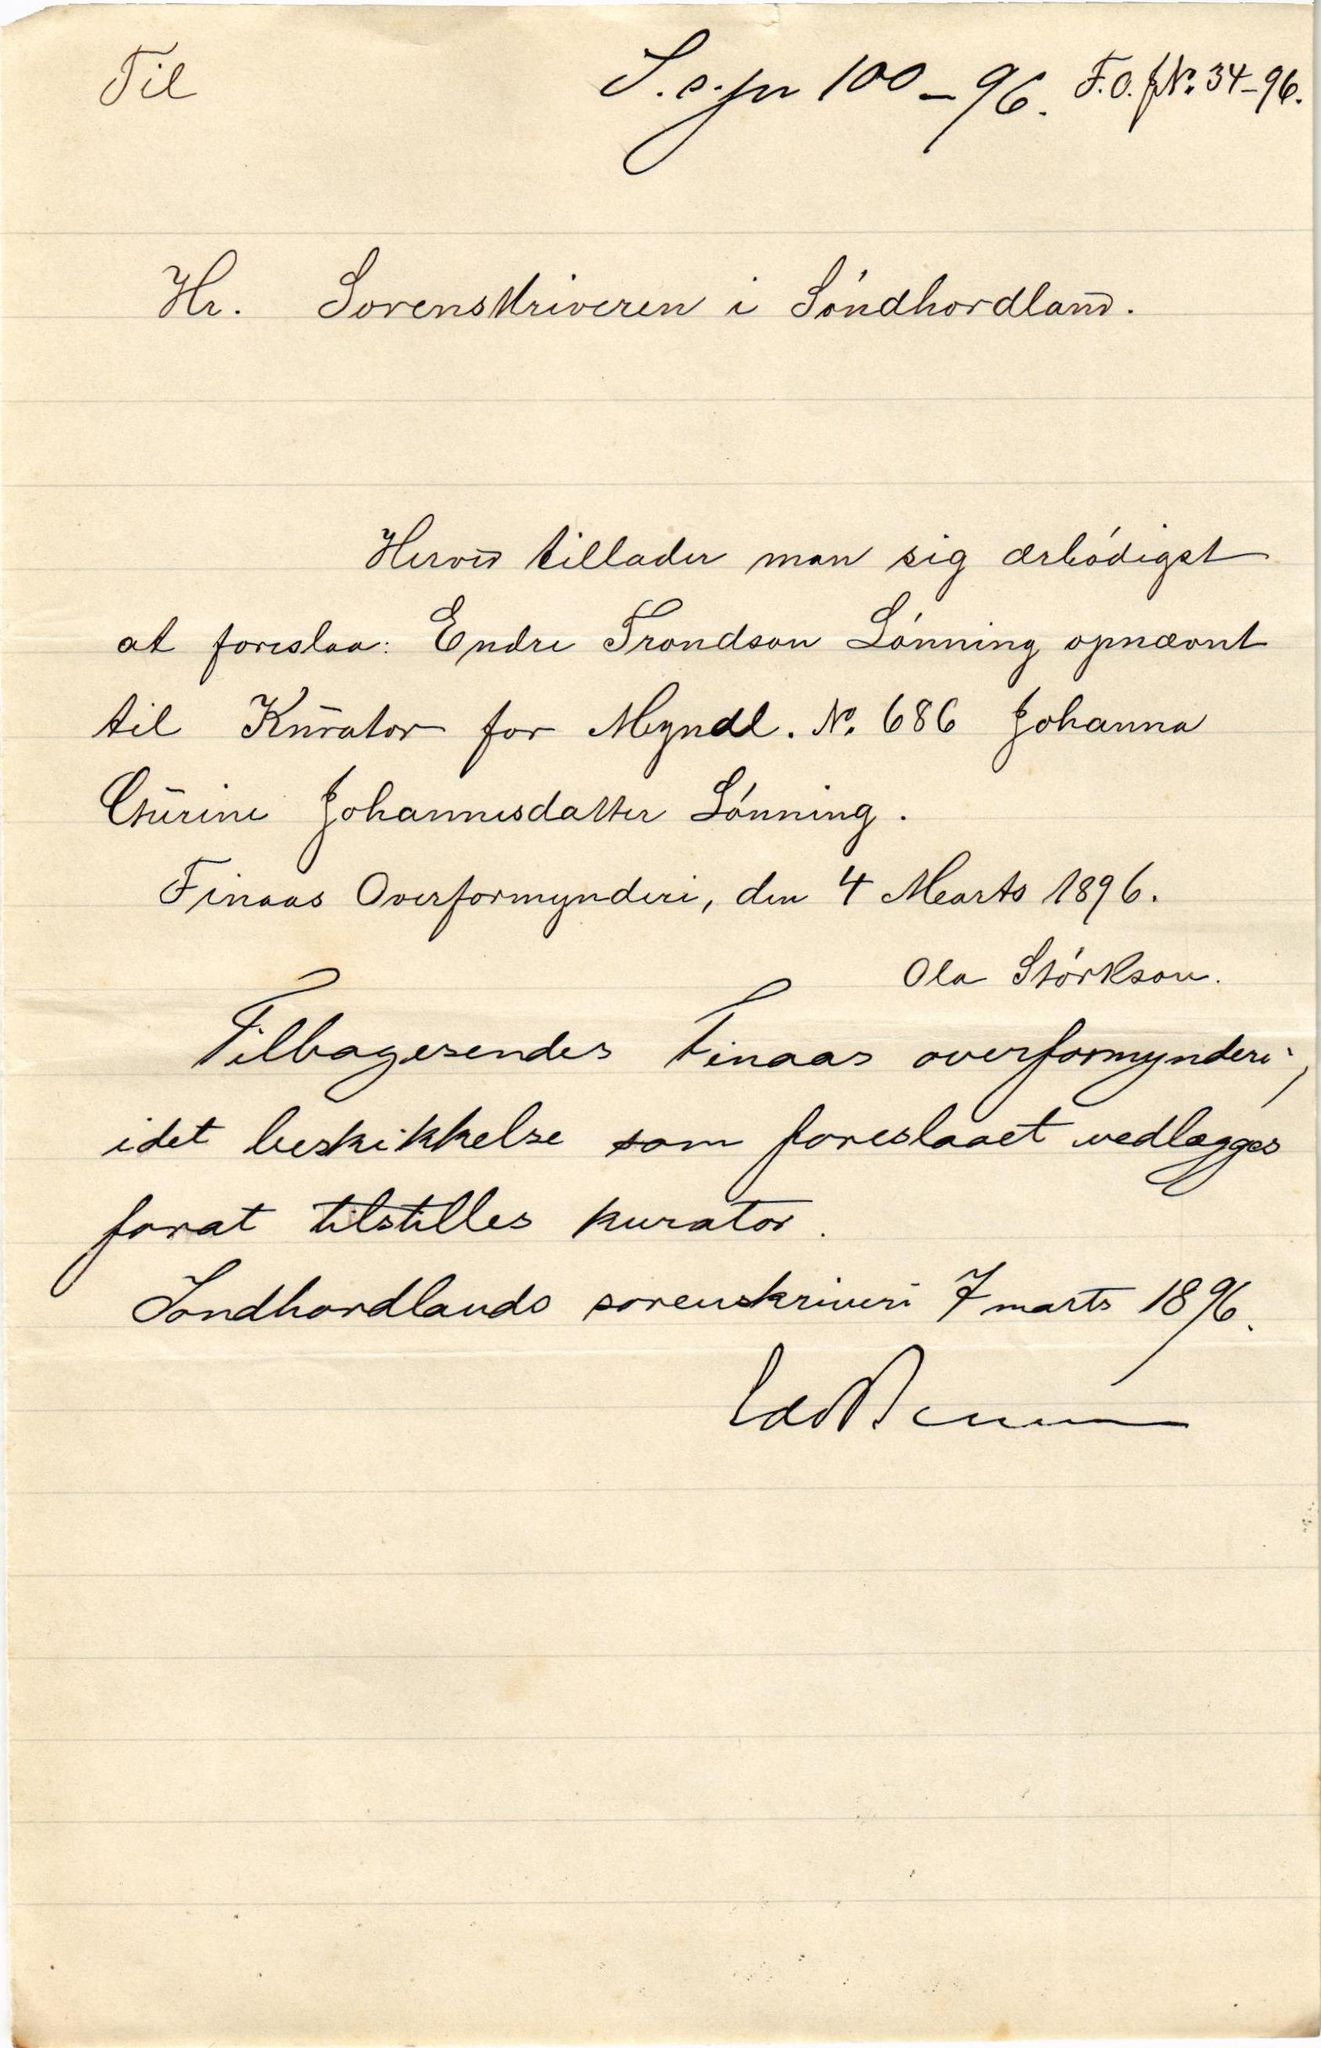 Til
S. s. jn 100 - 96. F. O. JNr. 34-96.
Hr. Sorenskriveren i Söndhordland.
Herved tillader man sig ærbödigst
at foreslaa: Endre Trondson Lönning opnævnt
til Kurator for Myndl. Nr. 686 Johanna
Gurine Johannesdatter Lönning.
Finaas Overformynderi, den 4 Marts 1896.
Ola Störkson.
Tilbagesendes Finaas overformynderi,
idet beskikkelse som foreslaaet vedlægges
forat tilstilles kurator.
Söndhordlands sorenskriveri 7 marts 1896.